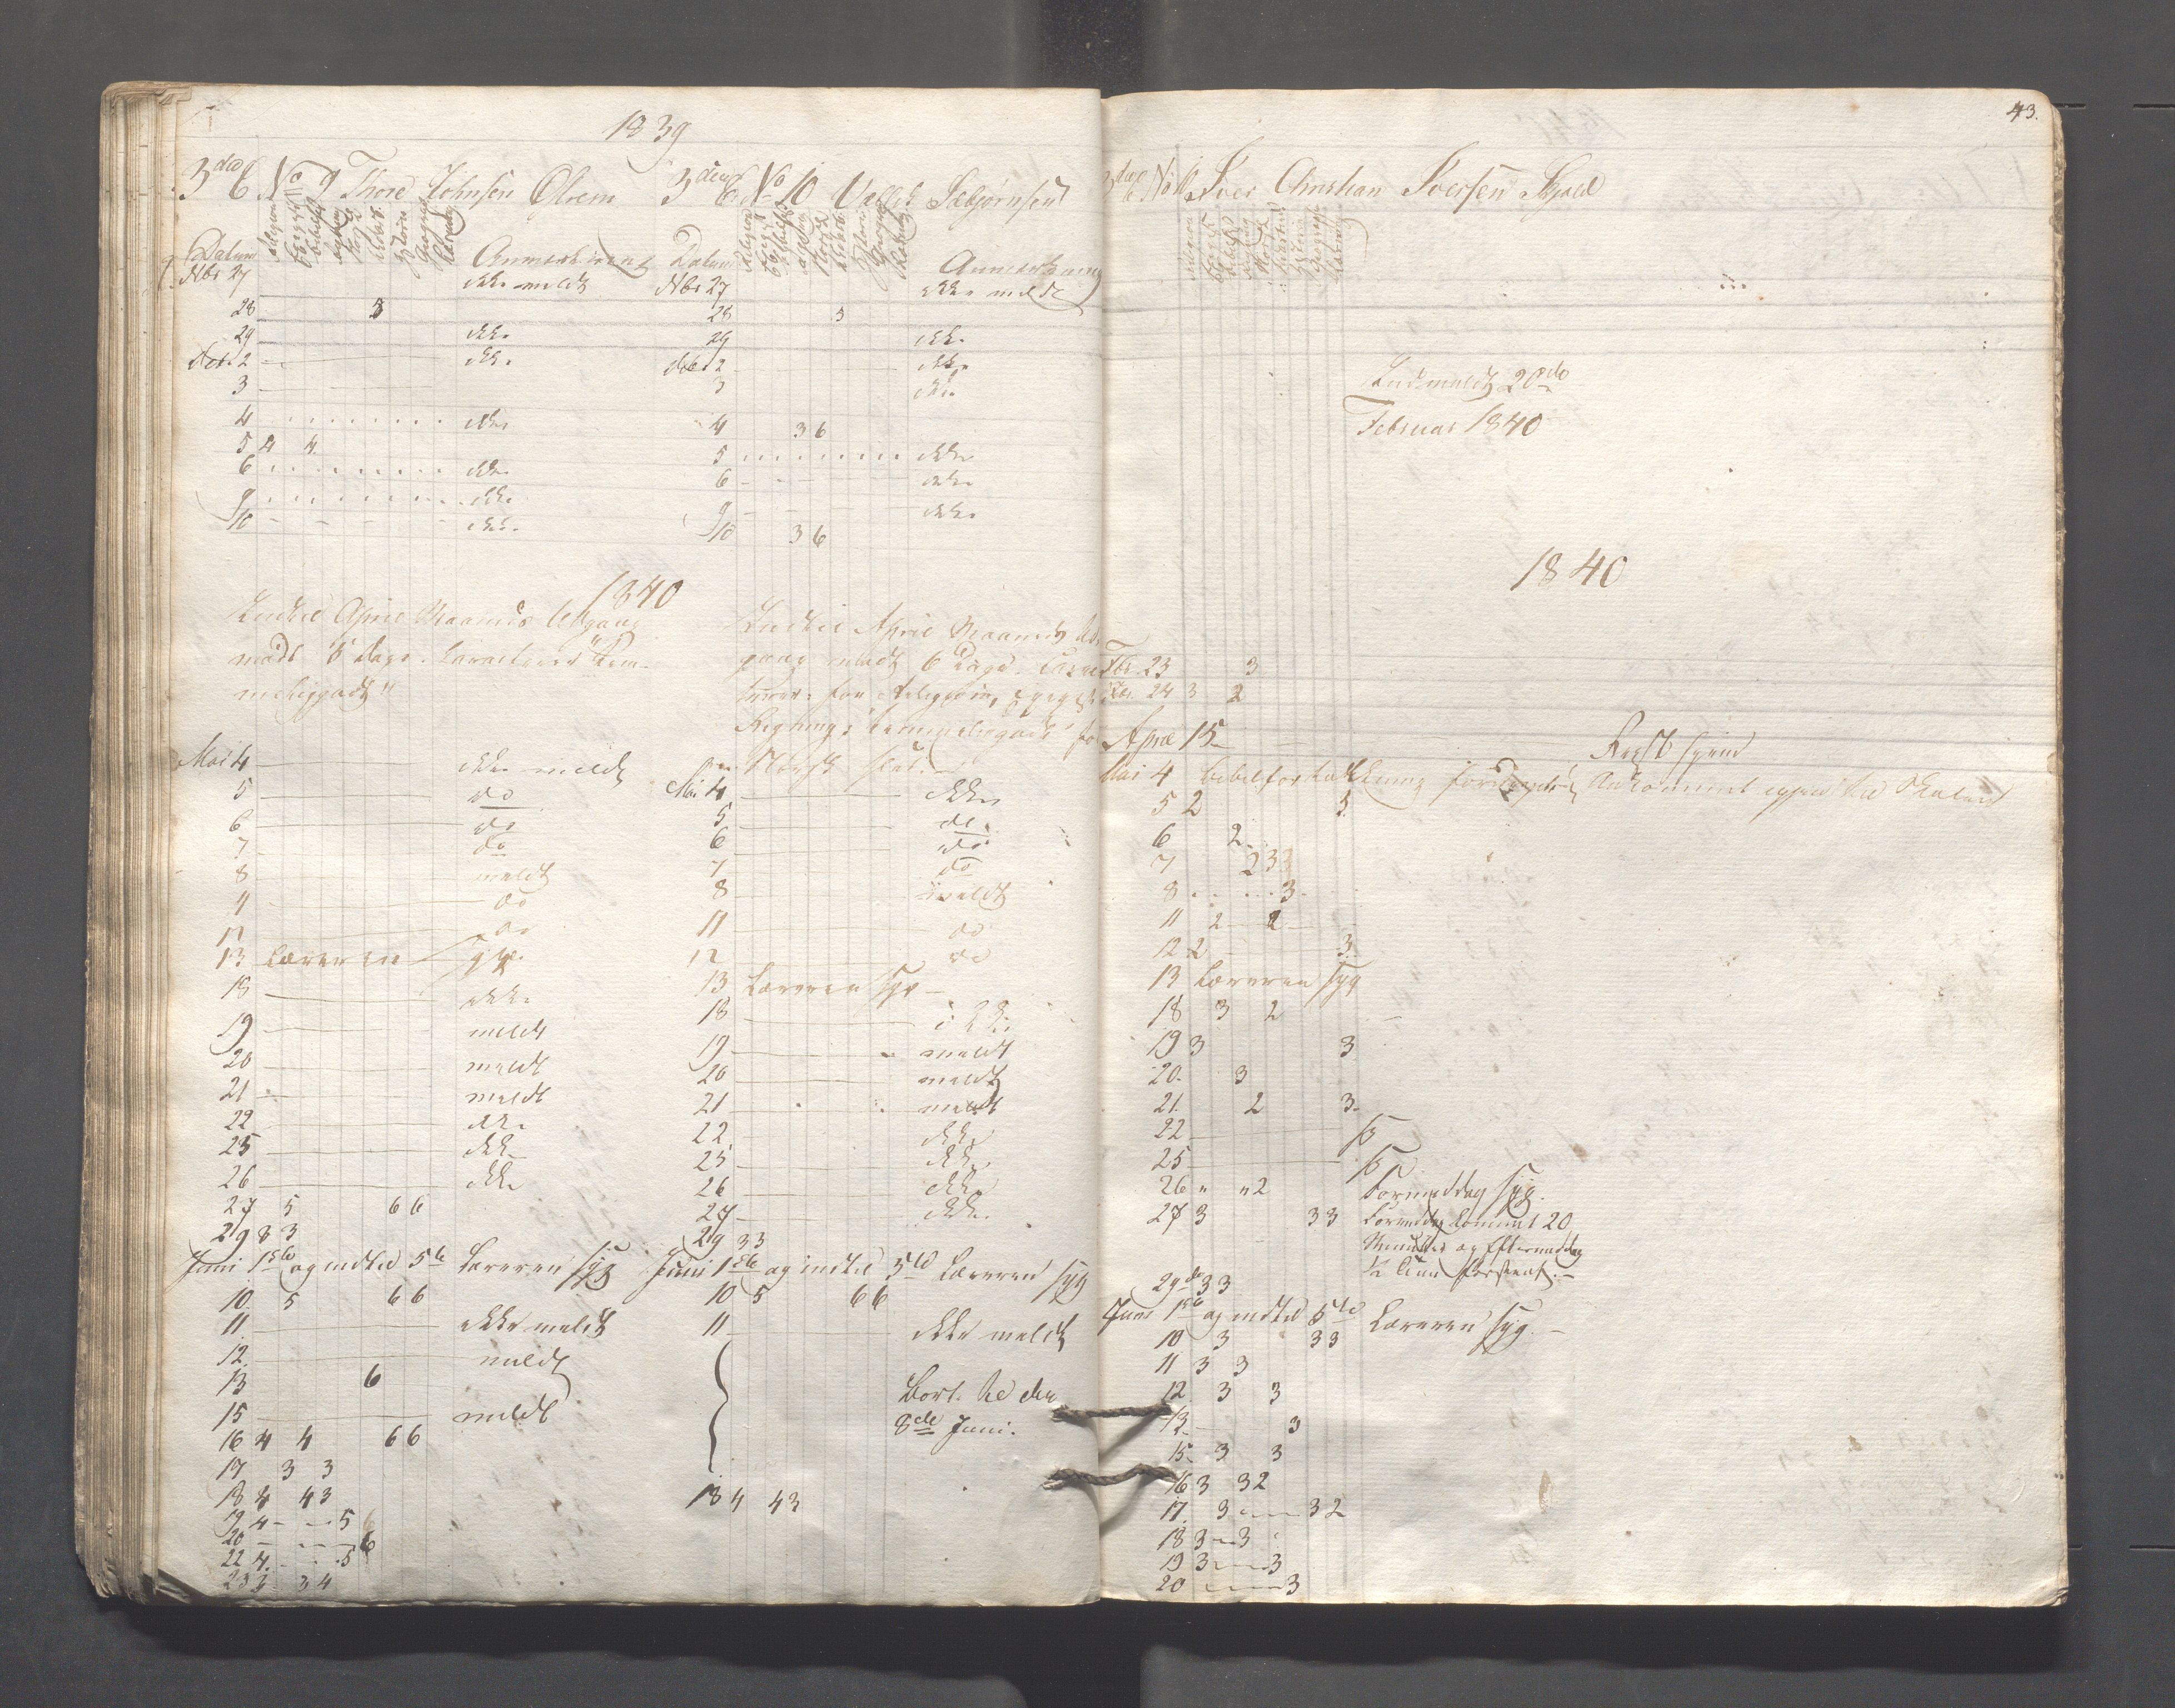 1839
3die No 9 Thore Johnsen Ølrem
Datum Religion Norsk Historie Geografie Regning Anmærkning
Nbr 27 ikke meldt
28 3
29 ikke
Dec. 2 ikke
3
4 ikke
5 4 4
6 ikke
9 ikke
10 ikke
1840
Indtil April Maaneds Udgang
mødt 6 dage. Caracteren "Tem-
meliggodt"
Mai 4 ikke meldt
5 do
6 do
7 do
8 meldt
11 do
12 do
13 Læreren syg
18 ikke
19 meldt
20 meldt
21 meldt
22 ikke
25 ikke
26 ikke
27 5 6 6
29 3 3
Juni 1ste og indtil 5te Læreren syg
10 5 6 6
11 ikke meldt
12 meldt
13 6
15 meldt
16 4 4 6 6
17 3 3
18 4 4 3
19 4 5
20 6
22 4 5
23 3 3 4
3die No 10 Sæbjørnsen
Datum Religion Norsk Historie Geografie Regning Anmærkning
Nbr 27 ikke meldt
28 3
29 ikke
Dec 2 ikke
3 ikke
4 3 6
5 ikke
6 ikke
9 ikke
10 3 6
Indtil April Maaneds Ud-
gang mødt 6 Dage.
for Religion,
Regning: temmeliggodt
Norsk slet.
Mai 4 ikke
5 do
6 do
7 do
8 meldt
11 do
12 do
13 Læreren syg
18 ikke
19 meldt
20 meldt
21 meldt
22 ikke
25 ikke
26 ikke
27 ikke
29 3 3
Juni 1ste og indtil 5te Læreren syg
10 5 6 6
11 ikke meldt
Bort. til den
8de Juni.
18 4 4 3
43.
No 11 Iver Christian Iversen Skjold
Indmeldt 20de
Februar 1840
1840
Fbr. 23 3
Fbr. 24 3 2
April 15
Mai 4 Bibelfortælling
5 2 3
6 2
7 2 3 3
8 3
11 2 2
12 2 3
13 Læreren syg
18 3 2
19 3 3
20 3
21 2 3
22
25
26 " " 2 Formiddag syg.
27 3 3 3 Formiddag kommet 20
Minutter og Eftermiddag
1/2 Time forseent.
29de 3 3
Juni 1ste og indtil 5te Læreren syg.
10 3 3 3
11 3 3
12 3 3
13 3
15 3 3
16 3 3 2
17 3 3 2
18 3 3
19 3 3
20 3